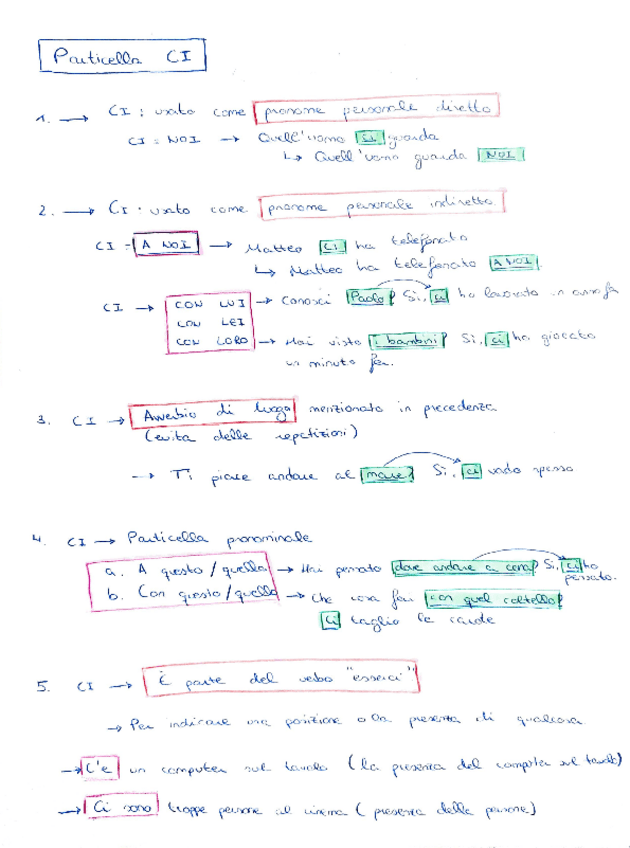 Particella CI
1. → CI : usato come pronome personale diretto
CI = NOI → Quell'uomo ci guarda
↳ Quell'uomo guarda NOI
2. → CI : usato come pronome personale indiretto
CI = A NOI → Matteo ci ha telefonato
↳ Matteo ha telefonato A NOI.
CI → CON LUI → Conosci Paolo? Si, ci ho lavorato un anno fa
CON LEI
CON LORO → Hai visto i bambini? Si, ci ho giocato
un minuto fa.
3. CI → Avverbio di luogo menzionato in precedenza
(evita delle repetizioni)
→ Ti piace andare al mare? Si, ci vado spesso
4. CI → Particella pronominale
a. A questo/quello → Hai pensato dove andare a cena? Si, ci ho
pensato.
b. Con questo/quello → Che cosa fai con quel coltello?
Ci taglio le
5. CI → È parte del verbo "esserci"
→ Per indicare una posizione o la presenza di qualcosa
→ C'e un computer sul tavolo (la presenza del computer sul tavolo)
→ Ci sono troppe persone al cinema (presenza delle persone)